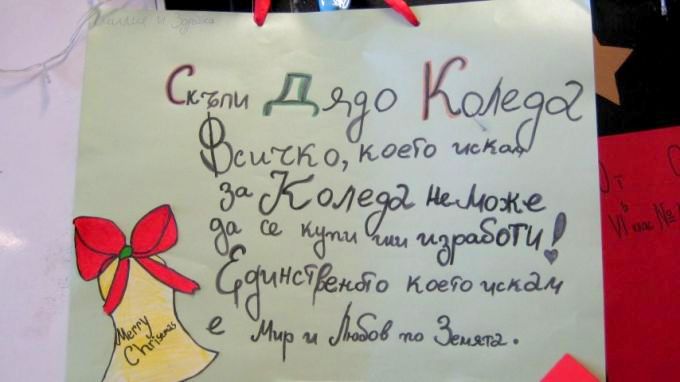 и
Скъпи Дядо Коледа
Всичко, което искам
за Коледа не може
да се купи или изработи!
Единственото което искам
е Мир и Любов по Земята.
Merry
Christmas
От
VI клас №